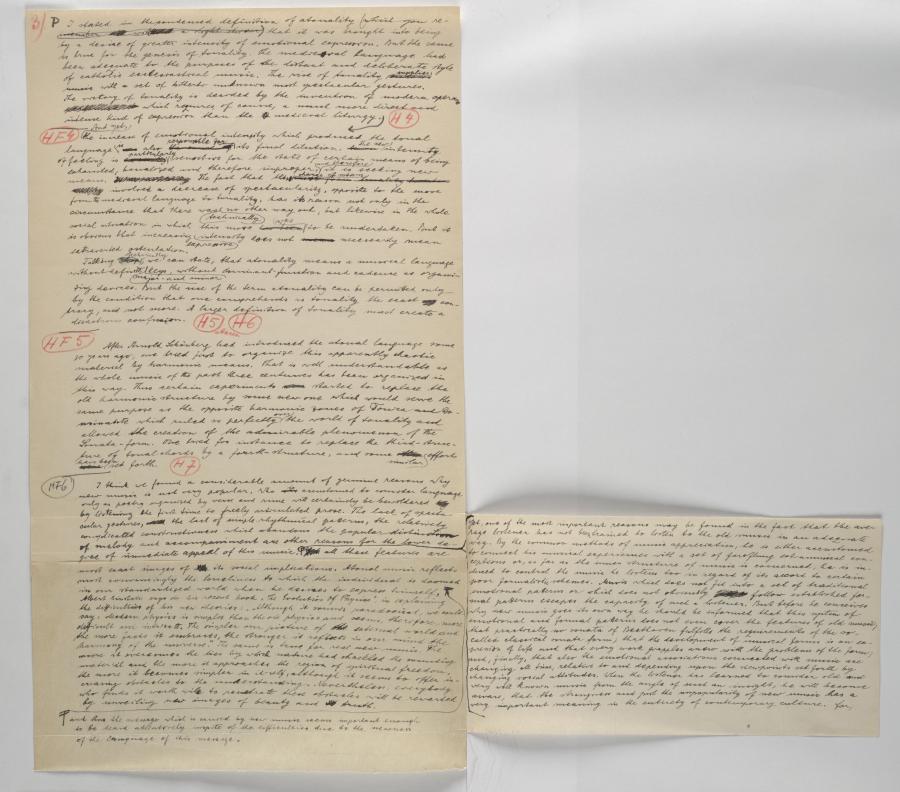 3) P I stated in the condensed definition of atonality (which you re-
member ) that it was brought into being
by a desire of greater intensity of emotional expression. But the same
is true for the genesis of tonality. The mediaeval language had
been adequate to the purposes of the distant and deliberate style
of catholic ecclesiastical music. The rise of tonality supplies
music with a set of hitherto unknown most spectacular gestures.
The victory of tonality is decided by the invention of modern opera,
which requires of course, a much more direct and
intense kind of expression than the medieval liturgy. H4
HF4 And yet, the increase of emotional intensity which produced the tonal
language is also responsible for its final dilution. The new intensity
of feeling is particularly sensitive for the state of certain means of being
exhausted, banalized and therefore improper, and therefore it is seeking new
means. The fact that the
involves a decrease of spectacularity, opposite to the move
from the mediaeval language to tonality, has its reason not only in the
circumstance that there was technically no other way out, but likewise in the whole
social situation in which this move was to be undertaken. But it
is obvious that increasing intensity expression does not necessarily mean
extraverted ostentation.
Talking technically we can state, that atonality means a musical language
without definite major and minor keys, without dominant-function and cadence as organi-
zing devices. But the use of the term atonality can be permitted only
by the condition that one comprehends as tonality the exact con-
trary, and not more. A larger definition of tonality must create a
disastrous confusion. H5 H6
HF5 After Arnold Schönberg had introduced the atonal language some
30 years ago, one tried first to organize this apparently chaotic
material by harmonic means. That is well understandable as
the whole music of the past three centuries has been organized in
this way. Thus certain experiments started to replace the
old harmonic structure by some new one which would serve the
same purpose as the opposite harmonic zones of Tonica and Do-
minante which ruled so perfectly over the world of tonality and
allowed the creation of the admirable phenomenon of the
Sonata-form. One tried for instance to replace the third-struc-
ture of tonal chords by a fourth-structure, and some similar efforts
have been set forth. H7
HF6 I think we found a considerable amount of genuine reasons why
new music is not very popular. Who is accustomed to consider language
only as poetry organized by verse and rime will certainly be bewildered
by listening the first time to freely articulated prose. The lack of specta-
cular gestures, the lack of simple rhythmical patterns, the relatively
complicated constructiveness which abandons the popular distinction
of melody and accompaniment are other reasons for the lower de-
gree of immediate appeal of this music. all these features are
most exact images of its social implications. Atonal music reflects
most convincingly the loneliness to which the individual is doomed
in our standardized world when he desires to express himself.
Albert Einstein says in his recent book "The Evolution of Physics" in explaining
the difficulties of his new theories: "Although it sounds paradoxical, we could
say: Modern Physics is simpler than the old physics and seems, therefore, more
difficult and intricate. The simpler our picture of the external world and
the more facts it embraces, the stronger it reflects in our minds the
harmony of the universe." The same is true for real new music. The
more it overcomes the ties by which nature had shackled the sounding
material and the more it approaches the region of spiritual freedom,
the more it becomes simpler in itself although it seems to offer in-
creasing obstacles to the understanding. Nevertheless everybody
who finds it worth while to penetrate these obstacles will be rewarded
by unveiling new images of beauty and truth.
P and thus the message which is carried by new music seems important enough
to be heard attentively in spite of the difficulties due to the newness
of the language of this message.
Yet, one of the most important reasons may be found in the fact that the ave-
rage listener has not been trained to listen to the old music in an adequate
way. By the common methods of music appreciation, he is either accustomed
to connect his musical experiences with a set of fairly outworn musical con-
ceptions or, as far as the inner structure of music is concerned, he is in-
duced to control the music he listens to in regard of its accord to certain
poor formalistic schemes. Music which does not fit into a set of traditional
emotional patterns or which does not obviously follow established for-
mal patterns escapes the capacity of such a listener. But before he conceives
why new music goes its own way he should be informed that this system of
emotional and formal patterns does not even cover the features of old music,
that practically no sonata of Beethoven fulfills the requirements of the so-
called classical sonata form, that the development of musical forms is an ex-
pression of life and that every work grapples anew with the problems of the form;
and, finally, that also the emotional emotions connected with music are
changing all time, relative to and depending upon the viewpoints set forth by
changing social attitudes. When the listener has learned to consider old and
very well known music from the angle of such an insight, he will become
aware, that the strangeness and just the unpopularity of new music has a
very important meaning in the entirety of contemporary culture. For,